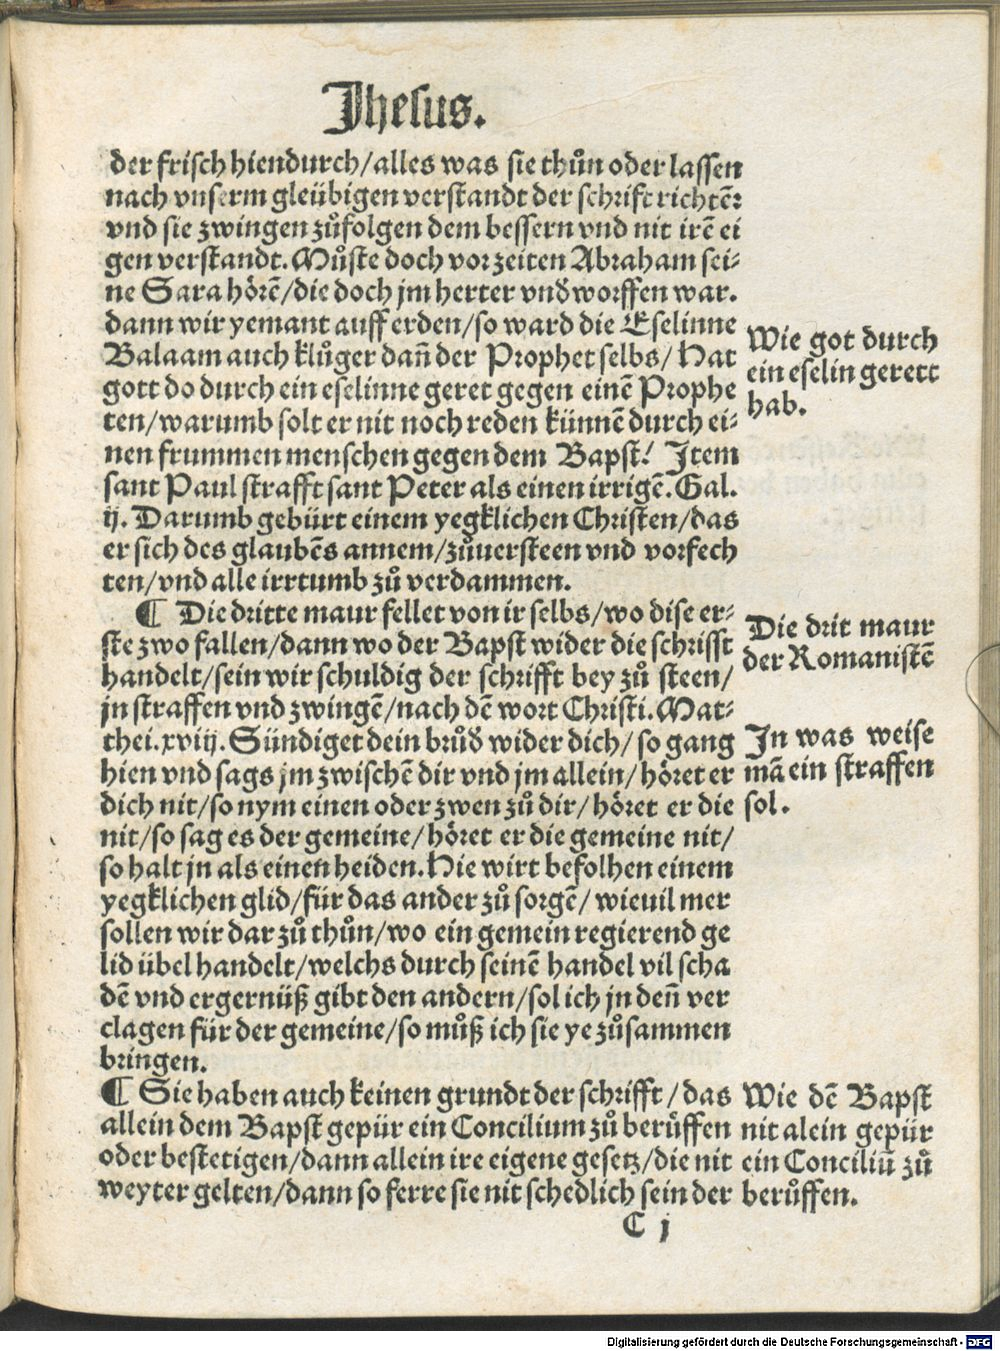 Jhesus.
der frisch hiendurch/alles was sie thůn oder lassen
nach vnserm gleübigen verstandt der schrift richtē:
vnd sie zwingen zůfolgen dem bessern vnd nit irē ei
gen verstandt. Můste doch vorzeiten Abraham sei-
ne Sara hörē/die doch jm herter vnd̕worffen war.
dann wir yemant auff erden/so ward die Eselinne
Balaam auch klůger dañ der Prophet selbs/ Hat
gott do durch ein eselinne geret gegen einē Prophe
ten/warumb solt er nit noch reden künnē durch ei-
nen frummen menschen gegen dem Bapst? Item
sant Paul strafft sant Peter als einen irrigē. Gal.
ij. Darumb gebürt einem yegklichen Christen/das
er sich des glaubēs annem/zůuersteen vnd vorfech
ten/vnd alle irrtumb zů verdammen.
¶ Die dritte maur fellet von ir selbs/wo dise er-
ste zwo fallen/dann wo der Bapst wider die schrifft
handelt/sein wir schuldig der schrifft bey zů steen/
jn straffen vnd zwingē/nach dē wort Christi. Mat-
thei.xviij. Sündiget dein brůd̕ wider dich/ so gang
hien vnd sags jm zwischē dir vnd jm allein/ höret er
dich nit/so nym einen oder zwen zů dir/ höret er die
nit/so sag es der gemeine/höret er die gemeine nit/
so halt jn als einen heiden. Hie wirt befolhen einem
yegklichen glid/für das ander zů sorgē/ wieuil mer
sollen wir dar zů thůn/wo ein gemein regierend ge
lid übel handelt/welchs durch seinē handel vil scha
dē vnd ergernüß gibt den andern/sol ich jn deñ ver
clagen für der gemeine/so můß ich sie ye zůsammen
bringen.
¶ Sie haben auch keinen grundt der schrifft/das
allein dem Bapst gepür ein Concilium zů berůffen
oder bestetigen/dann allein ire eigene gesetz/die nit
weyter gelten/dann so ferre sie nit schedlich sein der
C j
Wie got durch
ein eselin gerett
hab.
Die drit maur
der Romanistē
In was weise
mā ein straffen
sol.
Wie dē Bapst
nit alein gepür
ein Conciliū zů
berůffen.
Digitalisierung gefördert durch die Deutsche Forschungsgemeinschaft - DFG